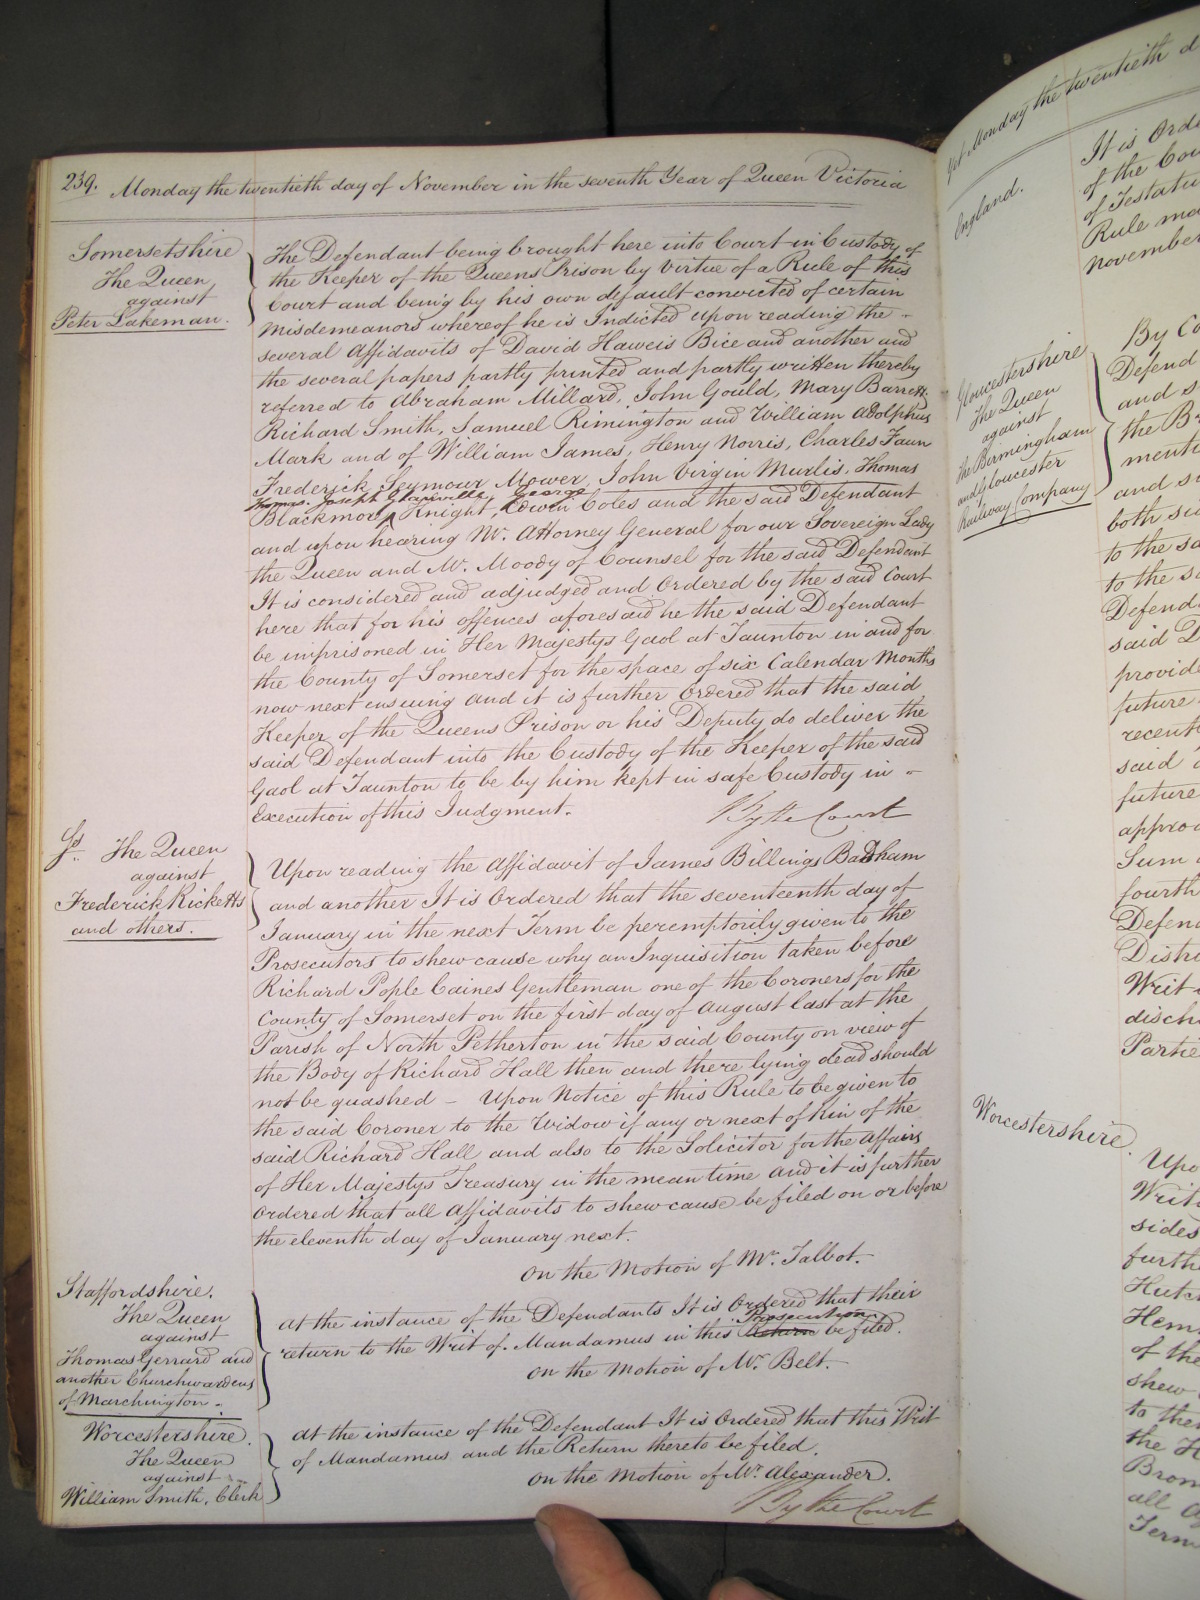 239. Monday the twentieth day of November in the seventh Year of Queen Victoria
Somersetshire
The Queen
against
Peter Lakeman.
The Defendant being brought here into Court in Custody of
the Keeper of the Queens Prison by virtue of a Rule of this
Court and being by his own default convicted of certain
Misdemeanors whereof he is Indicted upon reading the
several Affidavits of David Haweis Bice and another and
the several papers partly printed and partly written thereby
referred to Abraham Millard, John Gould, Mary Barrett
Richard Smith, Samuel Rimington and William Adolphus
Mark and of William James, Henry Norris, Charles Faun
Frederick Seymour Mower, John Virgin Murlis, Thomas
Thomas Joseph George
Blackmore Knight, Edwin Coles and the said Defendant
and upon hearing Mr. Attorney General for our Sovereign Lady
the Queen and Mr. Moody of Counsel for the said Defendant
It is considered and adjudged and Ordered by the said Court
here that for his offences aforesaid he the said Defendant
be imprisoned in Her Majestys Gaol at Taunton in and for
the County of Somerset for the space of six Calendar Months
now next ensuing and it is further Ordered that the said
Keeper of the Queens Prison or his Deputy do deliver the
said Defendant into the Custody of the Keeper of the said
Gaol at Taunton to be by him kept in safe Custody in
Execution of this Judgment.
By the Court
The Queen
against
Frederick Ricketts
and others.
Upon reading the Affidavit of James Billings Badham
and another It is Ordered that the seventeenth day of
January in the next Term be peremptorily given to the
Prosecutors to shew cause why an Inquisition taken before
Richard Pople Caines Gentleman one of the Coroners for the
County of Somerset on the first day of August last at the
Parish of North Petherton in the said County on view of
the Body of Richard Hall then and there lying dead should
not be quashed – Upon Notice of this Rule to be given to
the said Coroner to the Widow if any or next of Kin of the
said Richard Hall and also to the Solicitor for the Affairs
of Her Majestys Treasury in the mean time and it is further
Ordered that all Affidavits to shew cause be filed on or before
the eleventh day of January next.
On the Motion of Mr. Talbot.
Staffordshire.
The Queen
against
Thomas Gerrard and
another Churchwardens
of Marchington.
At the instance of the Defendants It is Ordered that their
Prosecution
return to the Writ of Mandamus in this Return be filed.
On the Motion of Mr. Belt.
Worcestershire.
The Queen
against
William Smith, Clerk
At the instance of the Defendant It is Ordered that this Writ
of Mandamus and the Return thereto be filed.
On the Motion of Mr. Alexander.
By the Court
Yet Monday the twentieth d
England.
It is Orde
of the Cou
of Testatu
Rule ma
November
Gloucestershire
The Queen
against
the Birmingham
and Gloucester
Railway Company
By Co
Defend
and s
the Br
menti
and su
both su
to the sa
to the s
Defend
said D
provide
future
recent
said
future
approv
Sum
fourth
Defen
Distri
Writ
disch
Partie
Worcestershire.
Upo
Writ
sides
furth
Hutch
Hem
of the
shew
to the
the H
Brom
all A
Term